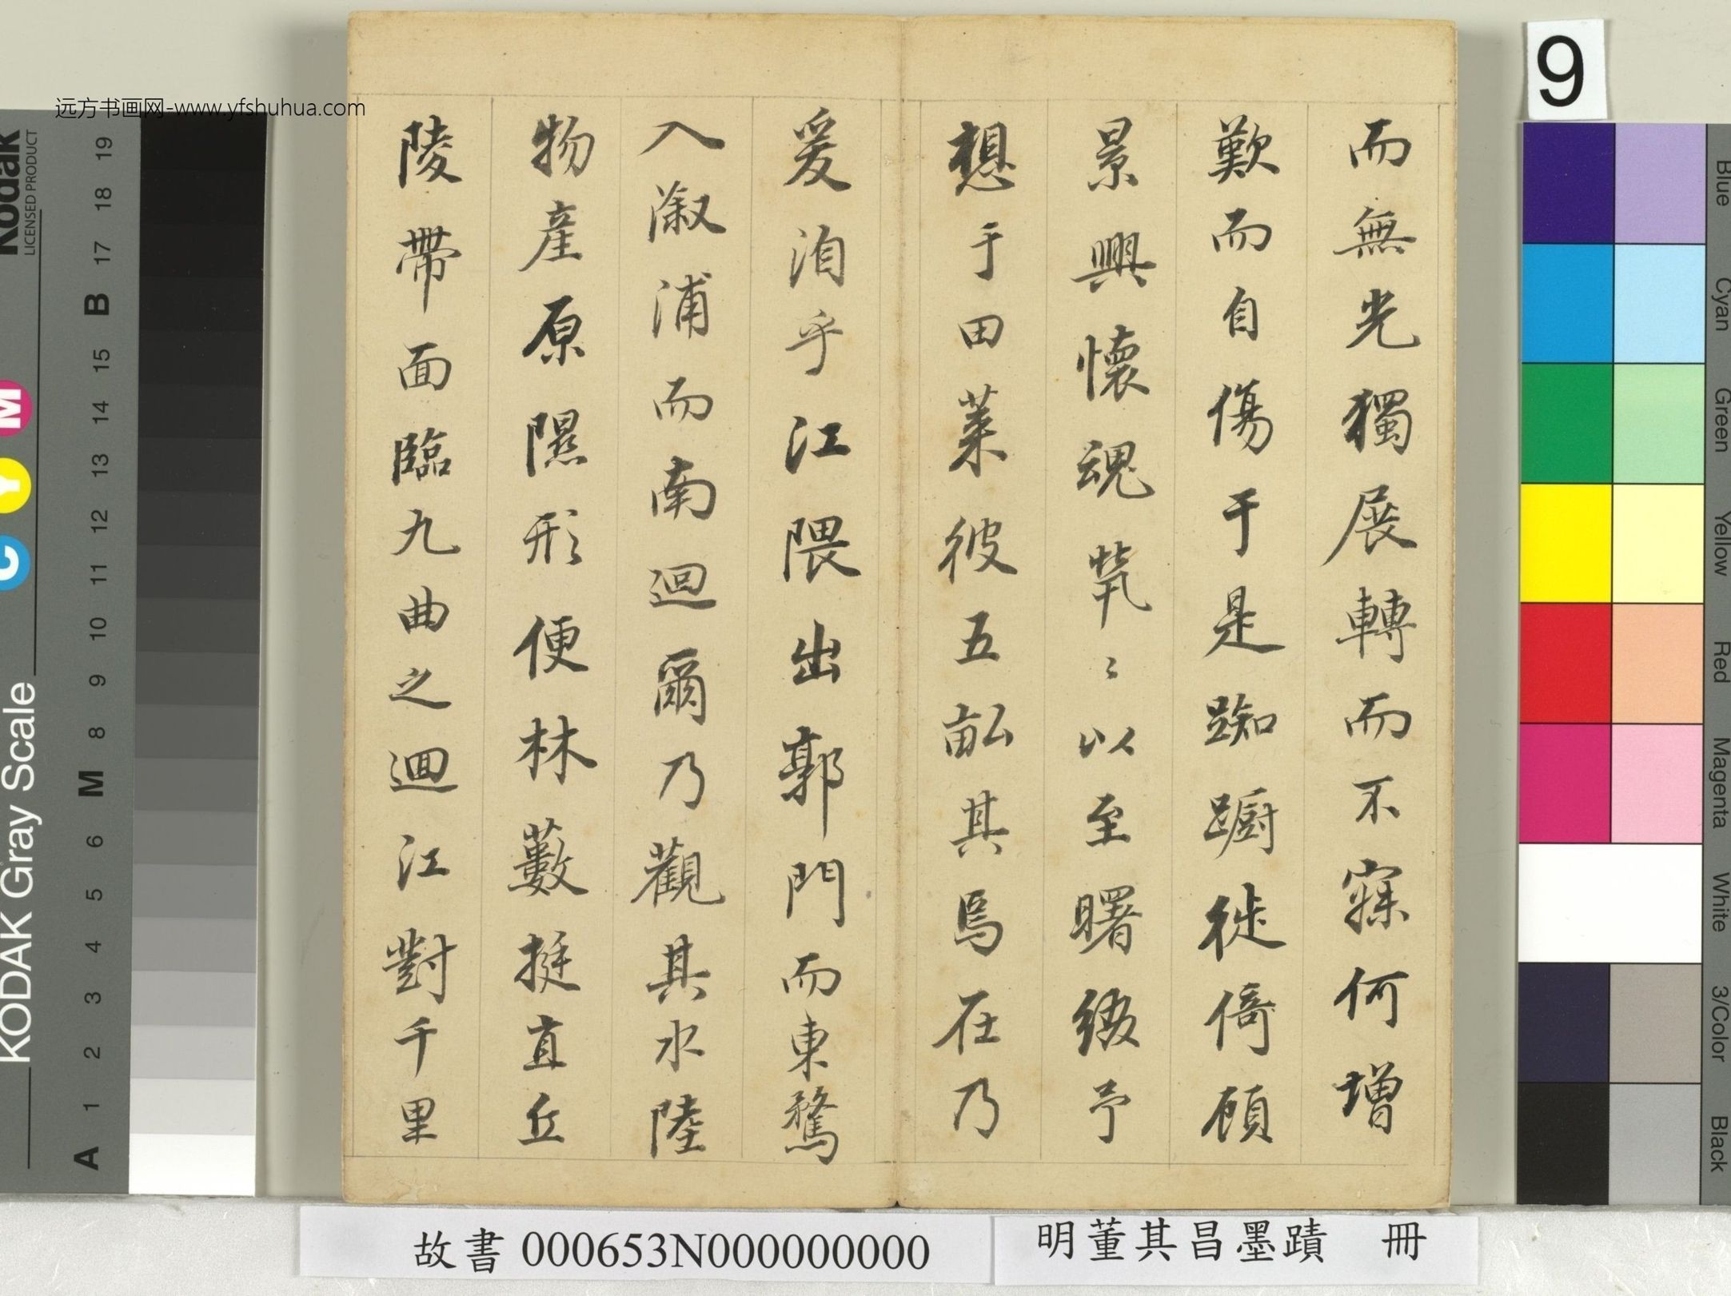 而無光獨展轉而不寐何增
歎而自傷于是踟躕徙倚顧
景興懷魂煢〻以至曙綴予
想于田萊彼五畝其焉在乃
爰洎乎江隈出郭門而東騖
入溆浦而南迴爾乃觀其水陸
物產原隰形便林藪挺直丘
陵帶面臨九曲之迴江對千里
远方书画网-www.yfshuhua.com
9
故書 000653N000000000
明董其昌墨蹟 冊
KODAK Gray Scale
Kodak
LICENSED PRODUCT
C Y M
A 1 2 3 4 5 6 M 8 9 10 11 12 13 14 15 B 17 18 19
Blue
Cyan
Green
Yellow
Red
Magenta
White
3/Color
Black